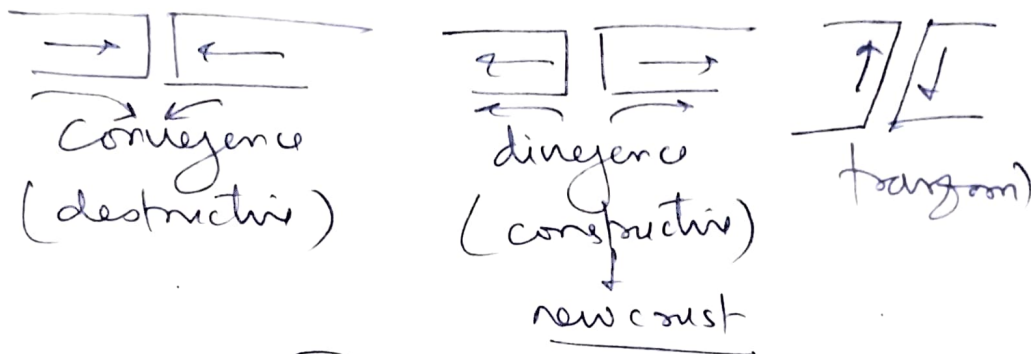 convergence
(destructive)
divergence
(constructive)
new crust
transform